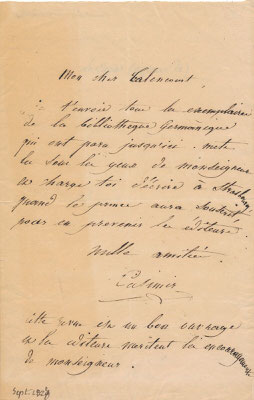 Mon cher
t'envoie tous les exemplaires
de la bibliotheque Germanique
qui ont paru jusqu'ici. mets
les sous les yeux de monseigneur
et charge toi d'écrire à Strasbourg
quand le prince aura souscrit
pour en prevenir les éditeurs.
mille amitiés
Casimir
cette revue est un bon ouvrage
et les éditeurs meritent les encouragements
de monseigneur.
Sept. 182